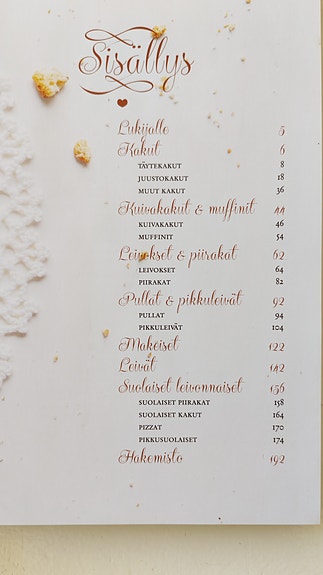 Sisällys
Lukijalle 5
Kakut 6
TÄYTEKAKUT 8
JUUSTOKAKUT 18
MUUT KAKUT 36
Kuivakakut & muffinit 44
KUIVAKAKUT 46
MUFFINIT 54
Leivokset & piirakat 62
LEIVOKSET 64
PIIRAKAT 82
Pullat & pikkuleivät 92
PULLAT 94
PIKKULEIVÄT 104
Makeiset 122
Leivät 142
Suolaiset leivonnaiset 156
SUOLAISET PIIRAKAT 158
SUOLAISET KAKUT 164
PIZZAT 170
PIKKUSUOLAISET 174
Hakemisto 192